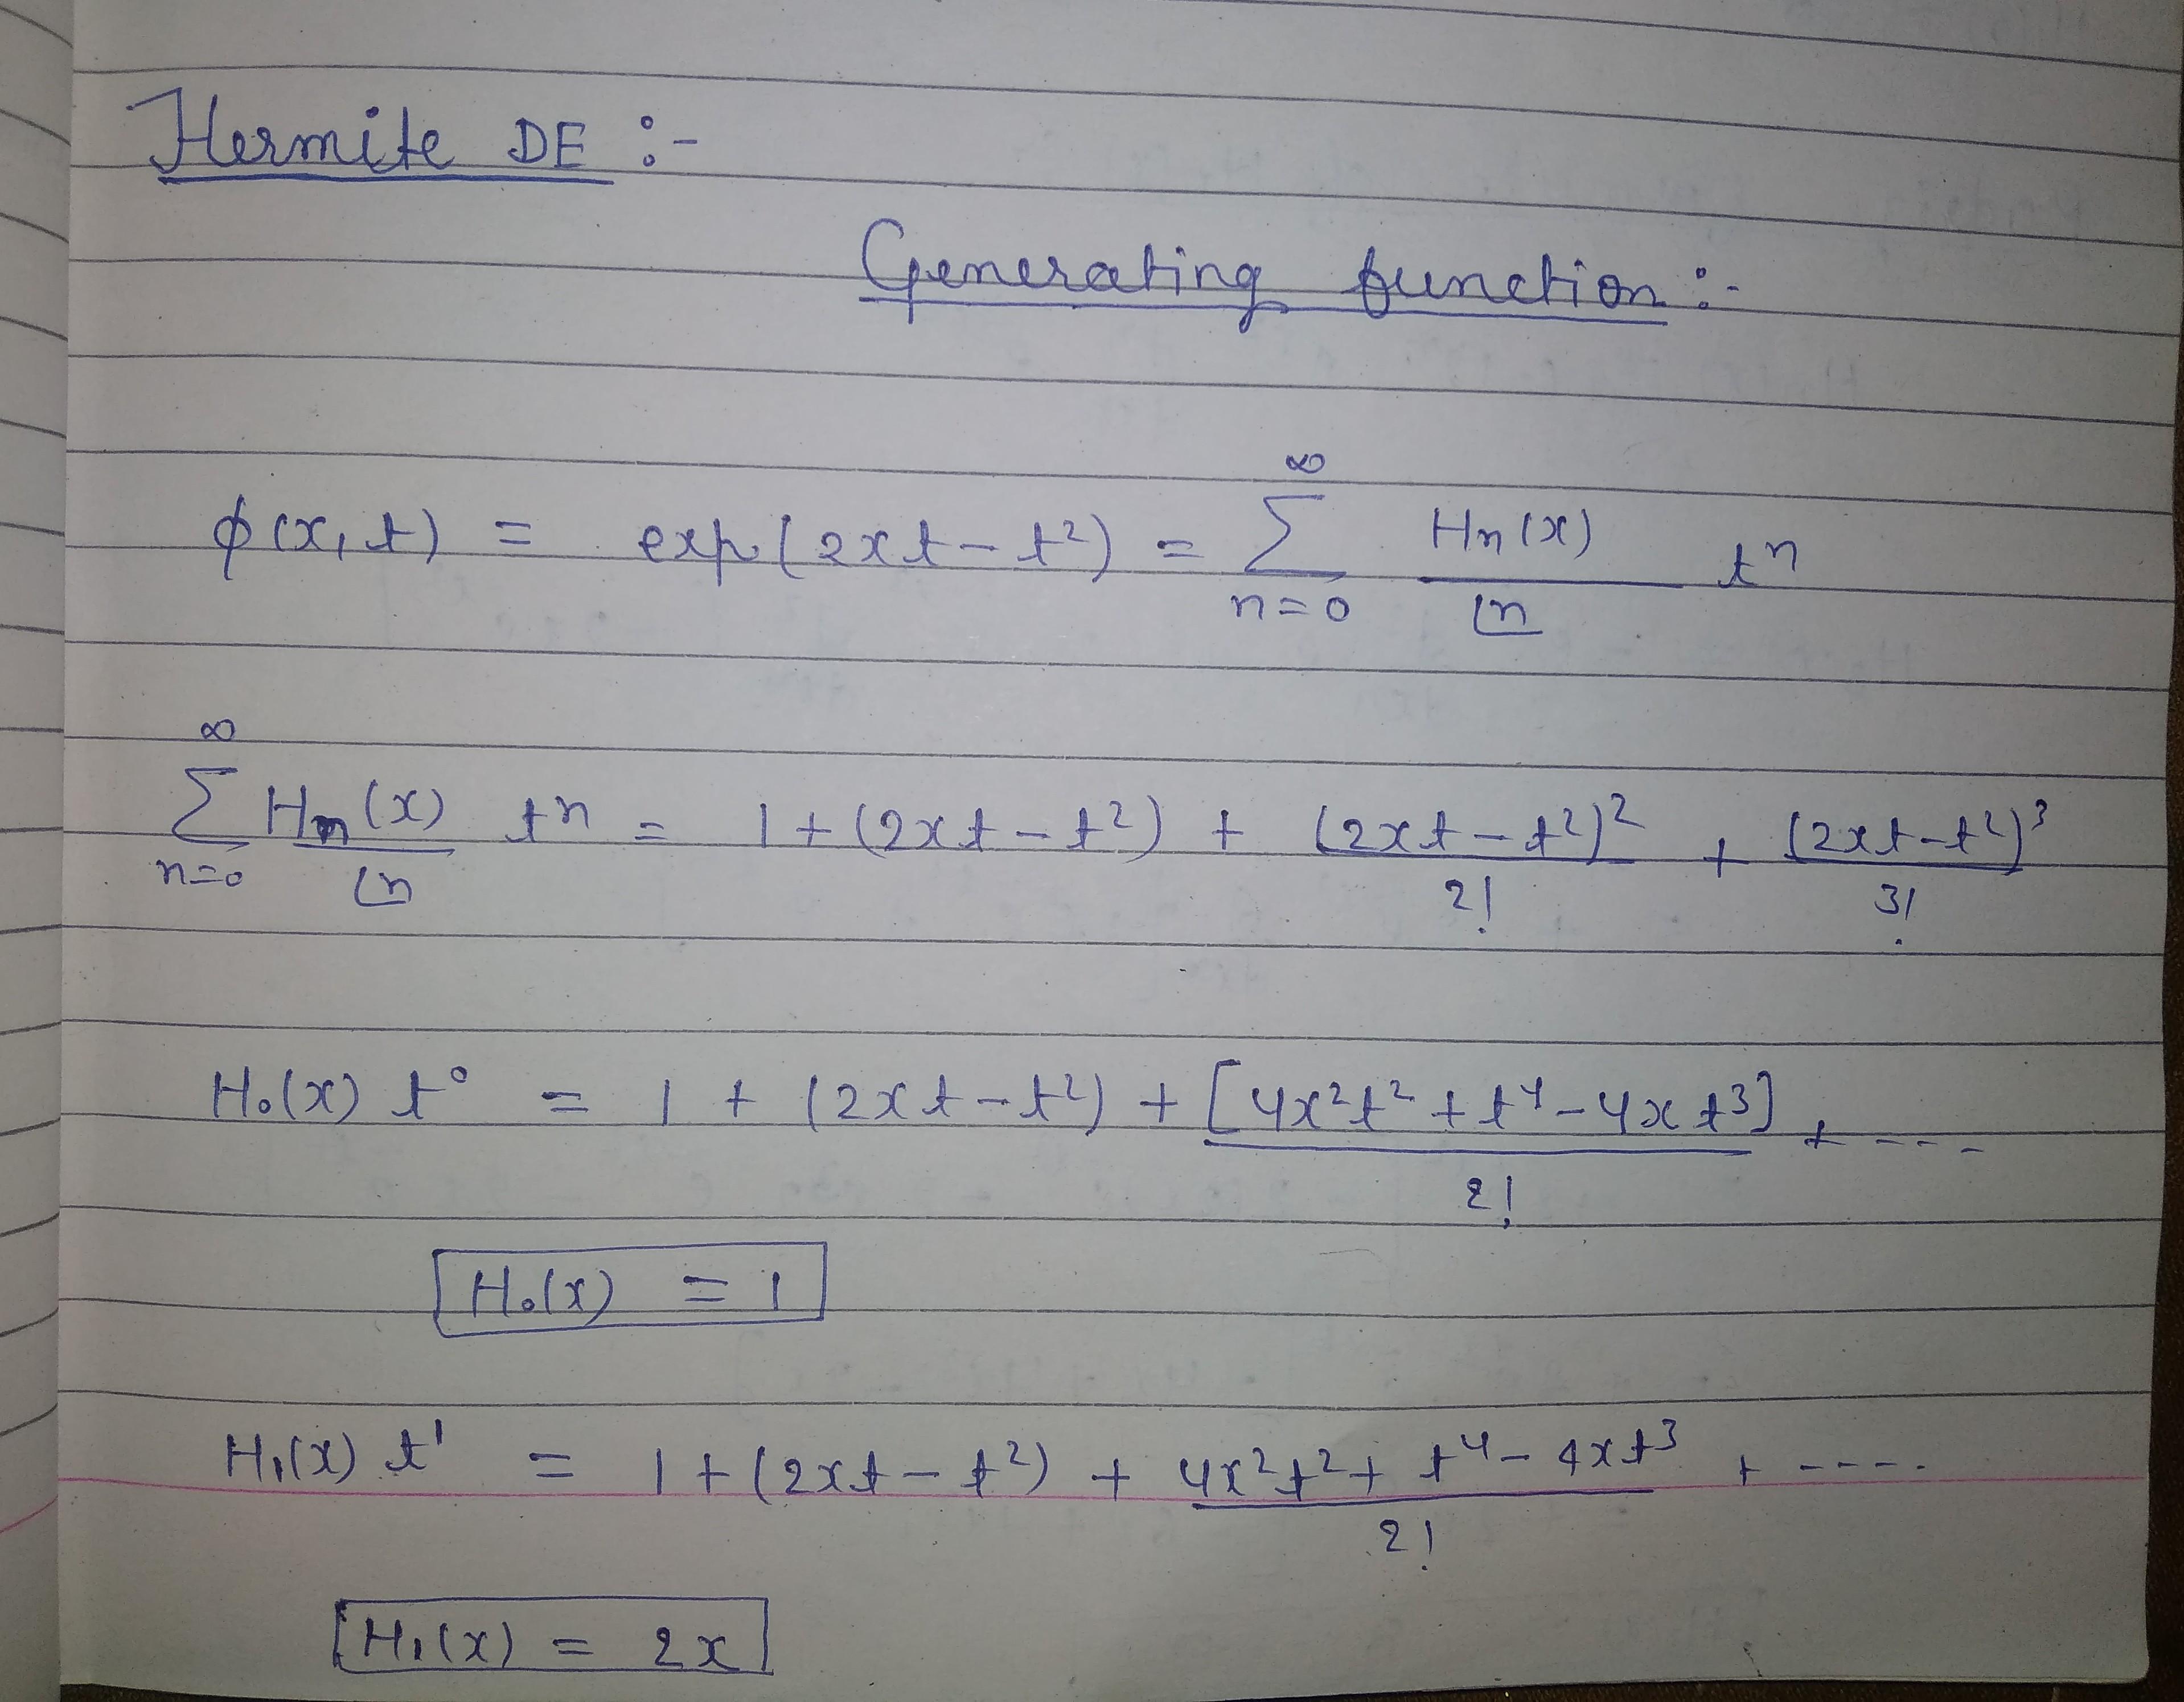 Hermite DE :-
Generating function :-
ϕ(x, t) = exp(2xt - t²) = ∞∑n=0 Hn(x)/⌊n tⁿ
∞∑n=0 Hn(x)/⌊n tⁿ = 1 + (2xt - t²) + (2xt - t²)²/2! + (2xt - t²)³/3!
H₀(x) t⁰ = 1 + (2xt - t²) + [4x²t² + t⁴ - 4xt³]/2! + ----
H₀(x) = 1
H₁(x) t¹ = 1 + (2xt - t²) + 4x²t² + t⁴ - 4xt³/2! + ----
H₁(x) = 2x